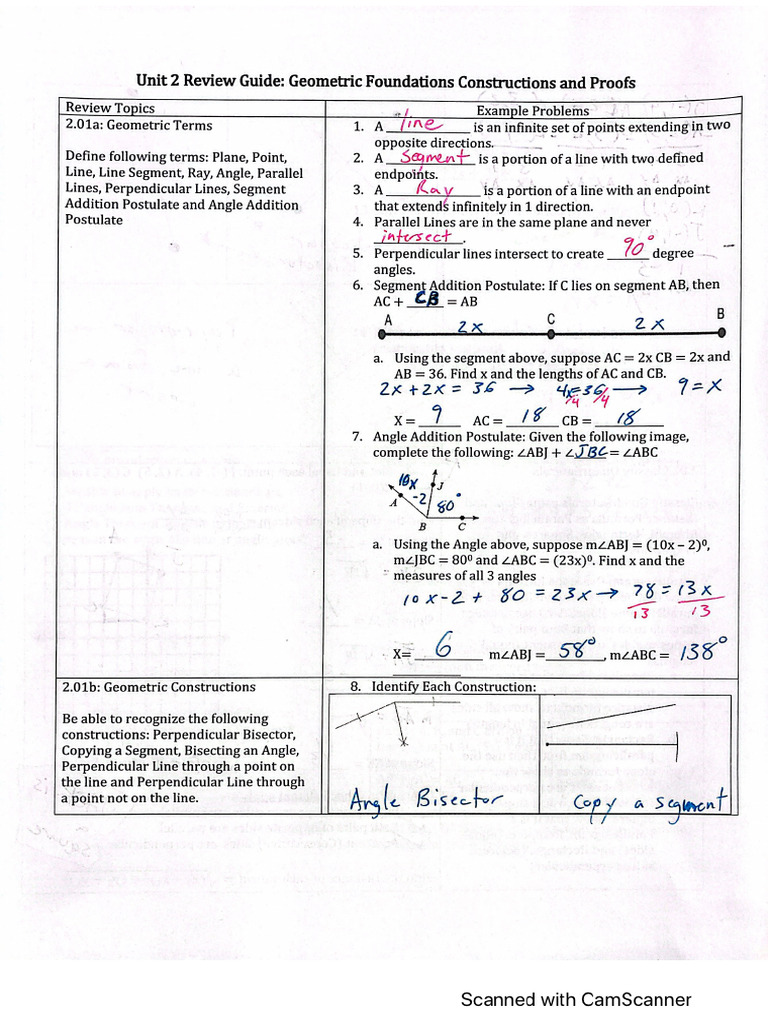 Unit 2 Review Guide: Geometric Foundations Constructions and Proofs
Review Topics
Example Problems
2.01a: Geometric Terms
Define following terms: Plane, Point,
Line, Line Segment, Ray, Angle, Parallel
Lines, Perpendicular Lines, Segment
Addition Postulate and Angle Addition
Postulate
1. A line is an infinite set of points extending in two
opposite directions.
2. A Segment is a portion of a line with two defined
endpoints.
3. A Ray is a portion of a line with an endpoint
that extends infinitely in 1 direction.
4. Parallel Lines are in the same plane and never
intersect.
5. Perpendicular lines intersect to create 90° degree
angles.
6. Segment Addition Postulate: If C lies on segment AB, then
AC + CB = AB
A 2x C 2x B
a. Using the segment above, suppose AC = 2x CB = 2x and
AB = 36. Find x and the lengths of AC and CB.
2x + 2x = 36 → 4x=36 → 9 = x
/4 /4
X = 9 AC = 18 CB = 18
7. Angle Addition Postulate: Given the following image,
complete the following: ∠ABJ + ∠JBC = ∠ABC
10x J
A -2 80°
B C
a. Using the Angle above, suppose m∠ABJ = (10x – 2)⁰,
m∠JBC = 80⁰ and ∠ABC = (23x)⁰. Find x and the
measures of all 3 angles
10x-2 + 80 = 23x → 78 = 13x
13 13
X= 6 m∠ABJ = 58°, m∠ABC = 138°
2.01b: Geometric Constructions
Be able to recognize the following
constructions: Perpendicular Bisector,
Copying a Segment, Bisecting an Angle,
Perpendicular Line through a point on
the line and Perpendicular Line through
a point not on the line.
8. Identify Each Construction:
Angle Bisector
Copy a segment
Scanned with CamScanner